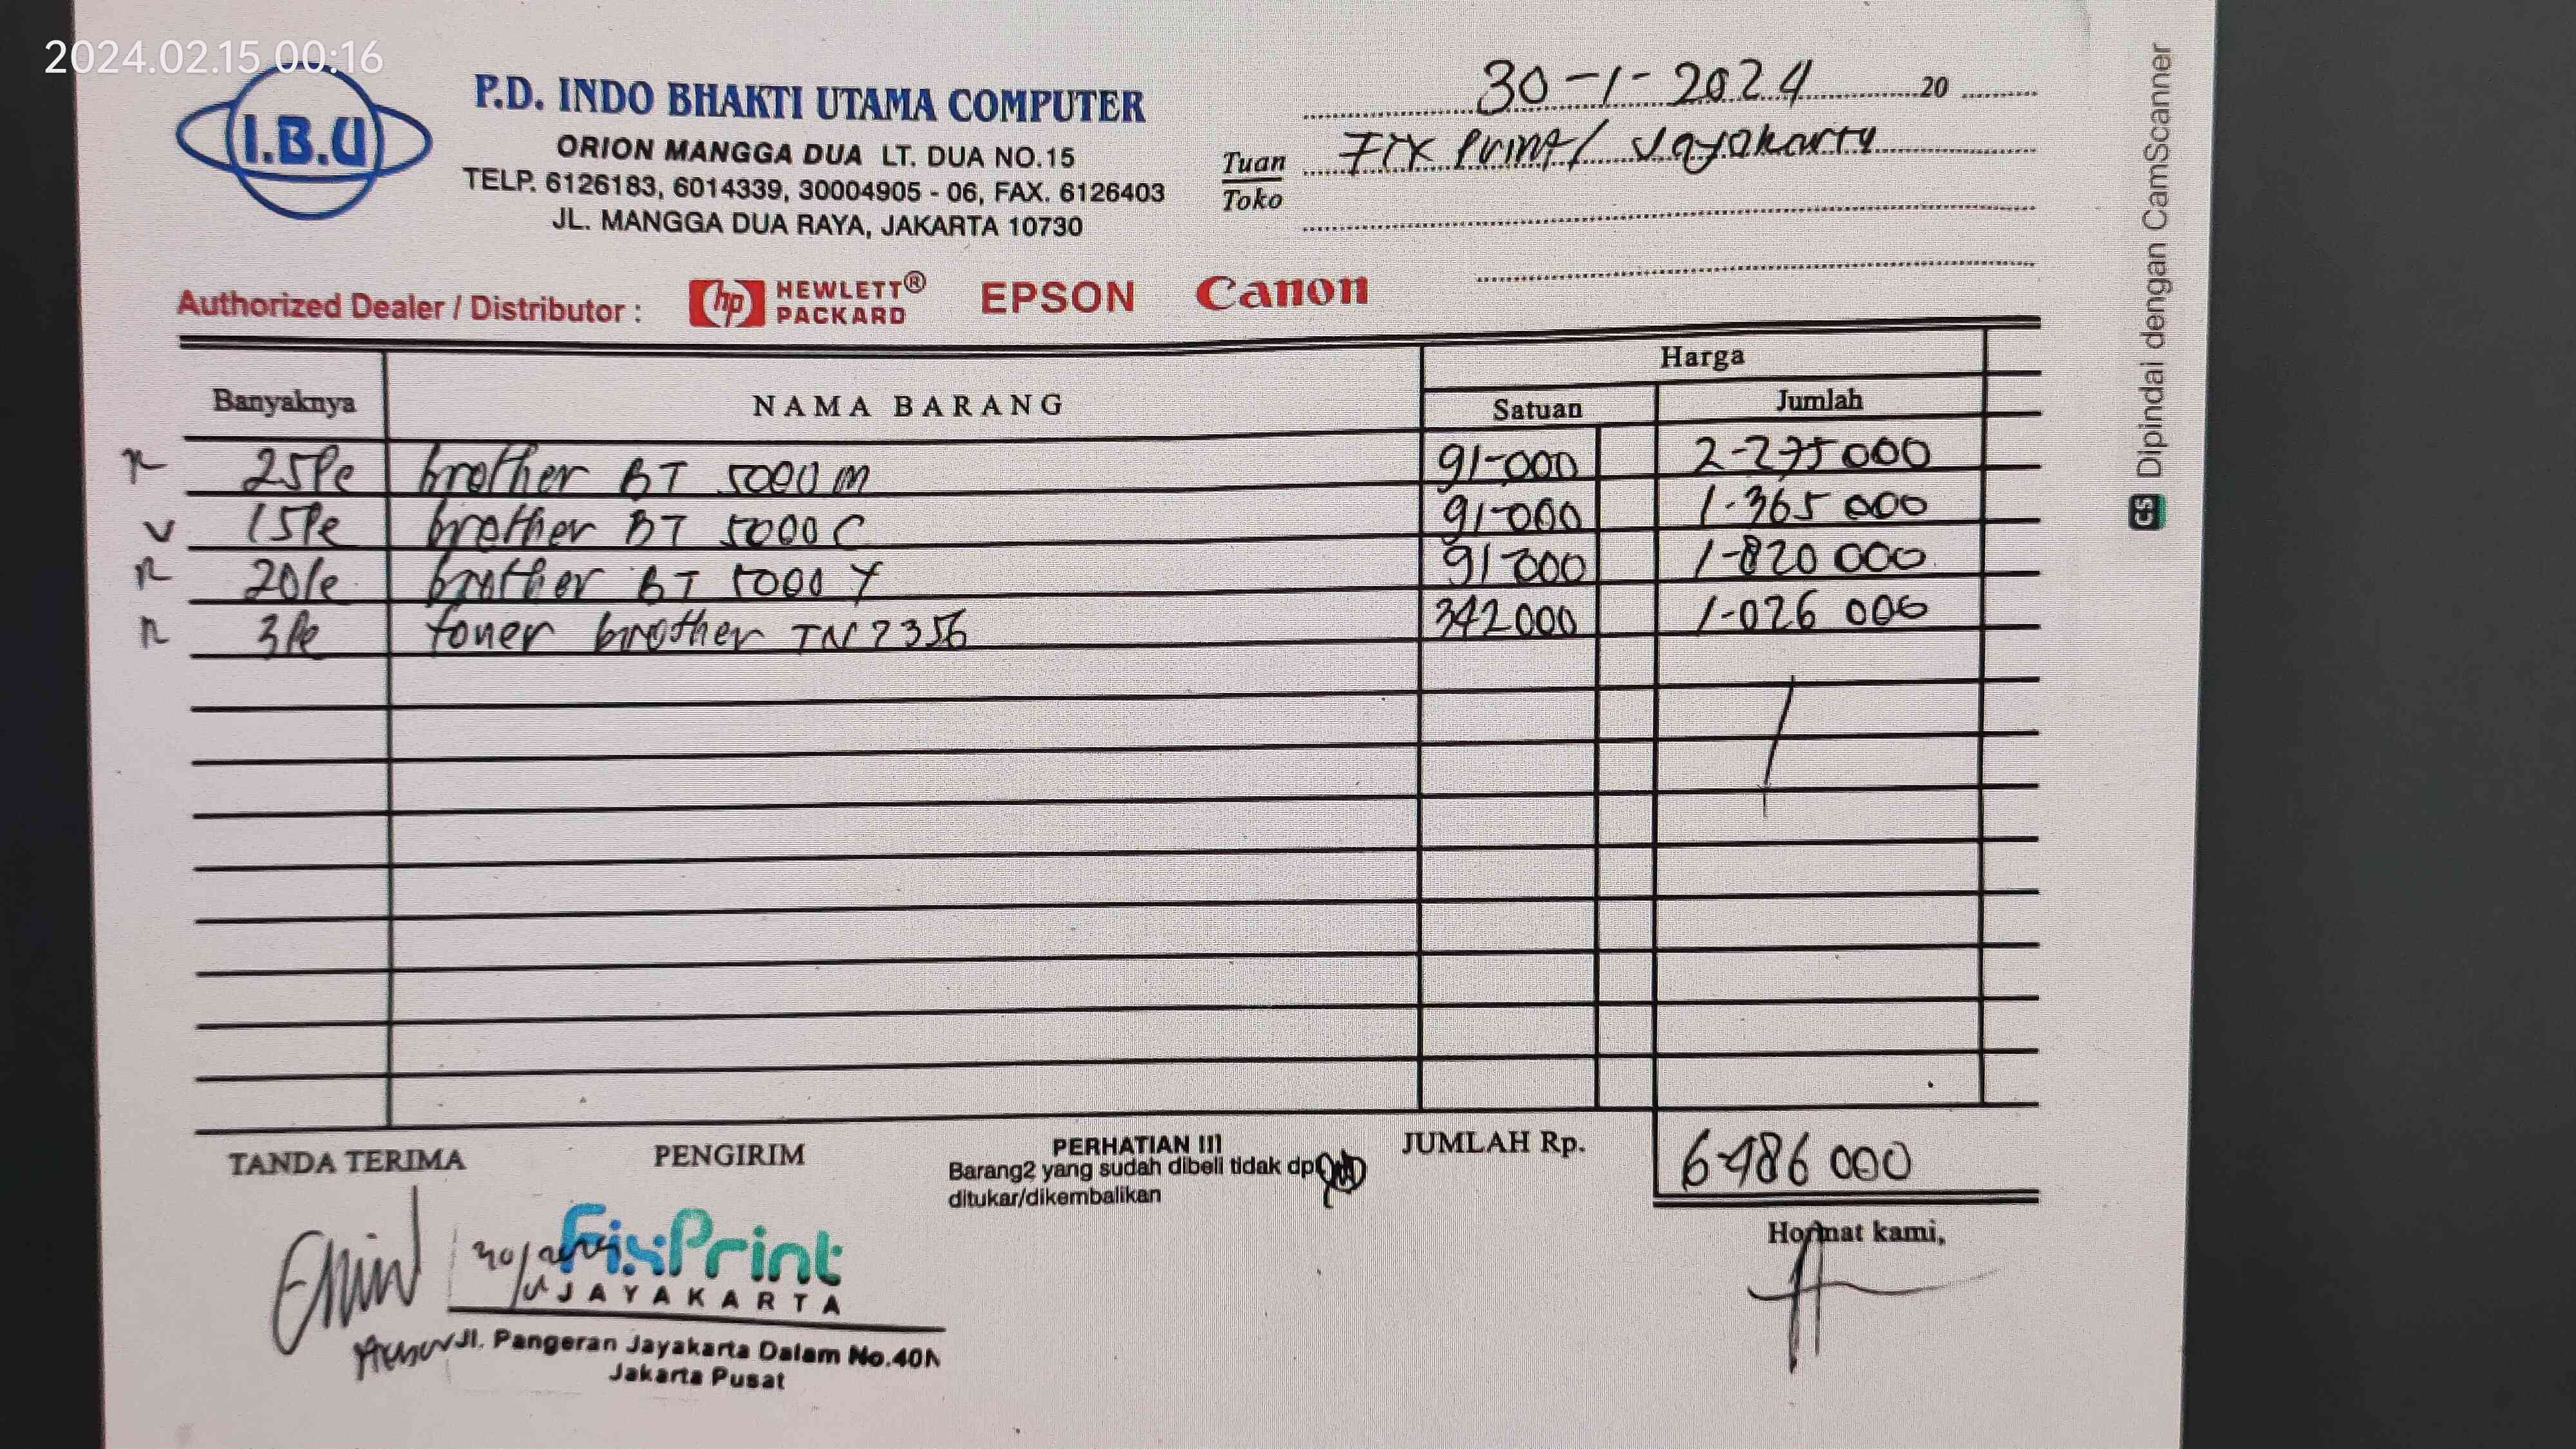 2024.02.15 00:16
I.B.U
P.D. INDO BHAKTI UTAMA COMPUTER
ORION MANGGA DUA LT. DUA NO.15
TELP. 6126183, 6014339, 30004905 - 06, FAX. 6126403
JL. MANGGA DUA RAYA, JAKARTA 10730
30-1-2024 20
Tuan Fix Print/ Jayakarta
Toko
Authorized Dealer / Distributor : hp HEWLETT® PACKARD EPSON Canon
Banyaknya NAMA BARANG Harga
Satuan Jumlah
25Pc brother BT 5000 m 91-000 2-275 000
15Pc brother BT 5000 C 91-000 1-365 000
20Pc brother BT 5000 Y 91-000 1-820 000
3Pc toner brother TN 2356 342000 1-026 000
TANDA TERIMA PENGIRIM PERHATIAN !!! JUMLAH Rp. 6-486 000
Barang2 yang sudah dibeli tidak dp
ditukar/dikembalikan
Hormat kami,
FixPrint
JAYAKARTA
Jl. Pangeran Jayakarta Dalam No.40A
Jakarta Pusat
Dipindai dengan CamScanner
CS